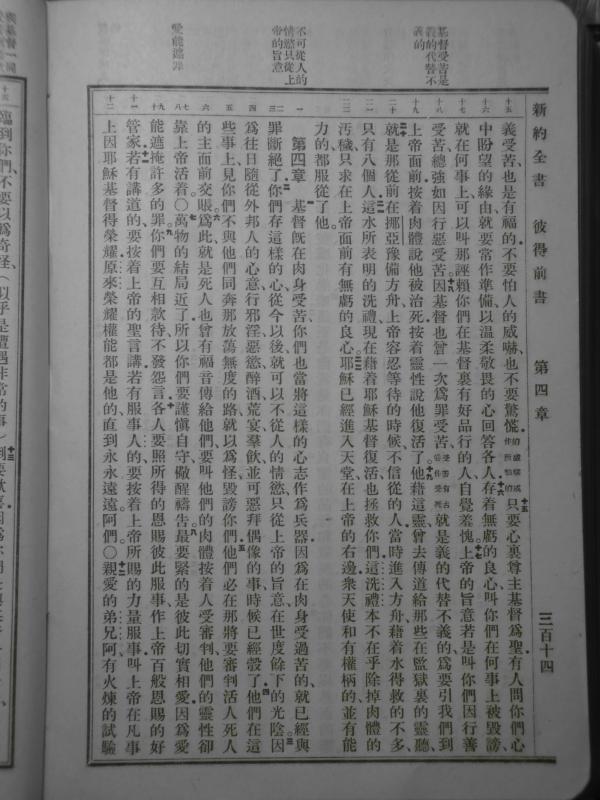 新約全書 彼得前書 第四章 三百十四
基督受苦是
義的代替不
義的
不可從人的
情慾只從上
帝的旨意
愛能遮罪
義受苦也是有福的不要怕人的威嚇也不要驚慌只要心裏尊主基督爲聖有人問你們心
中盼望的緣由就要常作準備以溫柔敬畏的心回答各人存着無虧的良心叫你們在何事上被毀謗
就在何事上可以叫那誣賴你們在基督裏有好品行的人自覺羞愧上帝的旨意若是叫你們因行善
受苦總強如因行惡受苦因基督也曾一次爲罪受苦就是義的代替不義的爲要引我們到
上帝面前按着肉體說他被治死按着靈性說他復活了他藉這靈曾去傳道給那些在監獄裏的靈聽
就是那從前在挪亞豫備方舟上帝容忍等待的時候不信從的人當時進入方舟藉着水得救的不多
只有八個人這水所表明的洗禮現在藉着耶穌基督復活也拯救你們這洗禮本不在乎除掉肉體的
污穢只求在上帝面前有無虧的良心耶穌已經進入天堂在上帝的右邊衆天使和有權柄的並有能
力的都服從了他
第四章 基督旣在肉身受苦你們也當將這樣的心志作爲兵器因爲在肉身受過苦的就已經與
罪斷絕了你們存這樣的心從今以後就可以不從人的情慾只從上帝的旨意在世度餘下的光陰因
爲往日隨從外邦人的心意行邪淫惡慾醉酒荒宴羣飲並可惡拜偶像的事時候已經彀了他們在這
些事上見你們不與他們同奔那放蕩無度的路就以爲怪毀謗你們他們必在那將要審判活人死人
的主面前交賬爲此就是死人也曾有福音傳給他們要叫他們的肉體按着人受審判他們的靈性卻
靠上帝活着〇萬物的結局近了所以你們要謹慎自守儆醒禱告最要緊的是彼此切實相愛因爲愛
能遮掩許多的罪你們要互相款待不發怨言各人要照所得的恩賜彼此服事作上帝百般恩賜的好
管家若有講道的要按着上帝的聖言講若有服事人的要按着上帝所賜的力量服事叫上帝在凡事
上因耶穌基督得榮耀原來榮耀權能都是他的直到永永遠遠阿們〇親愛的弟兄阿有火煉的試驗
臨到你們不要以爲奇怪（似乎是遭遇非常的事）